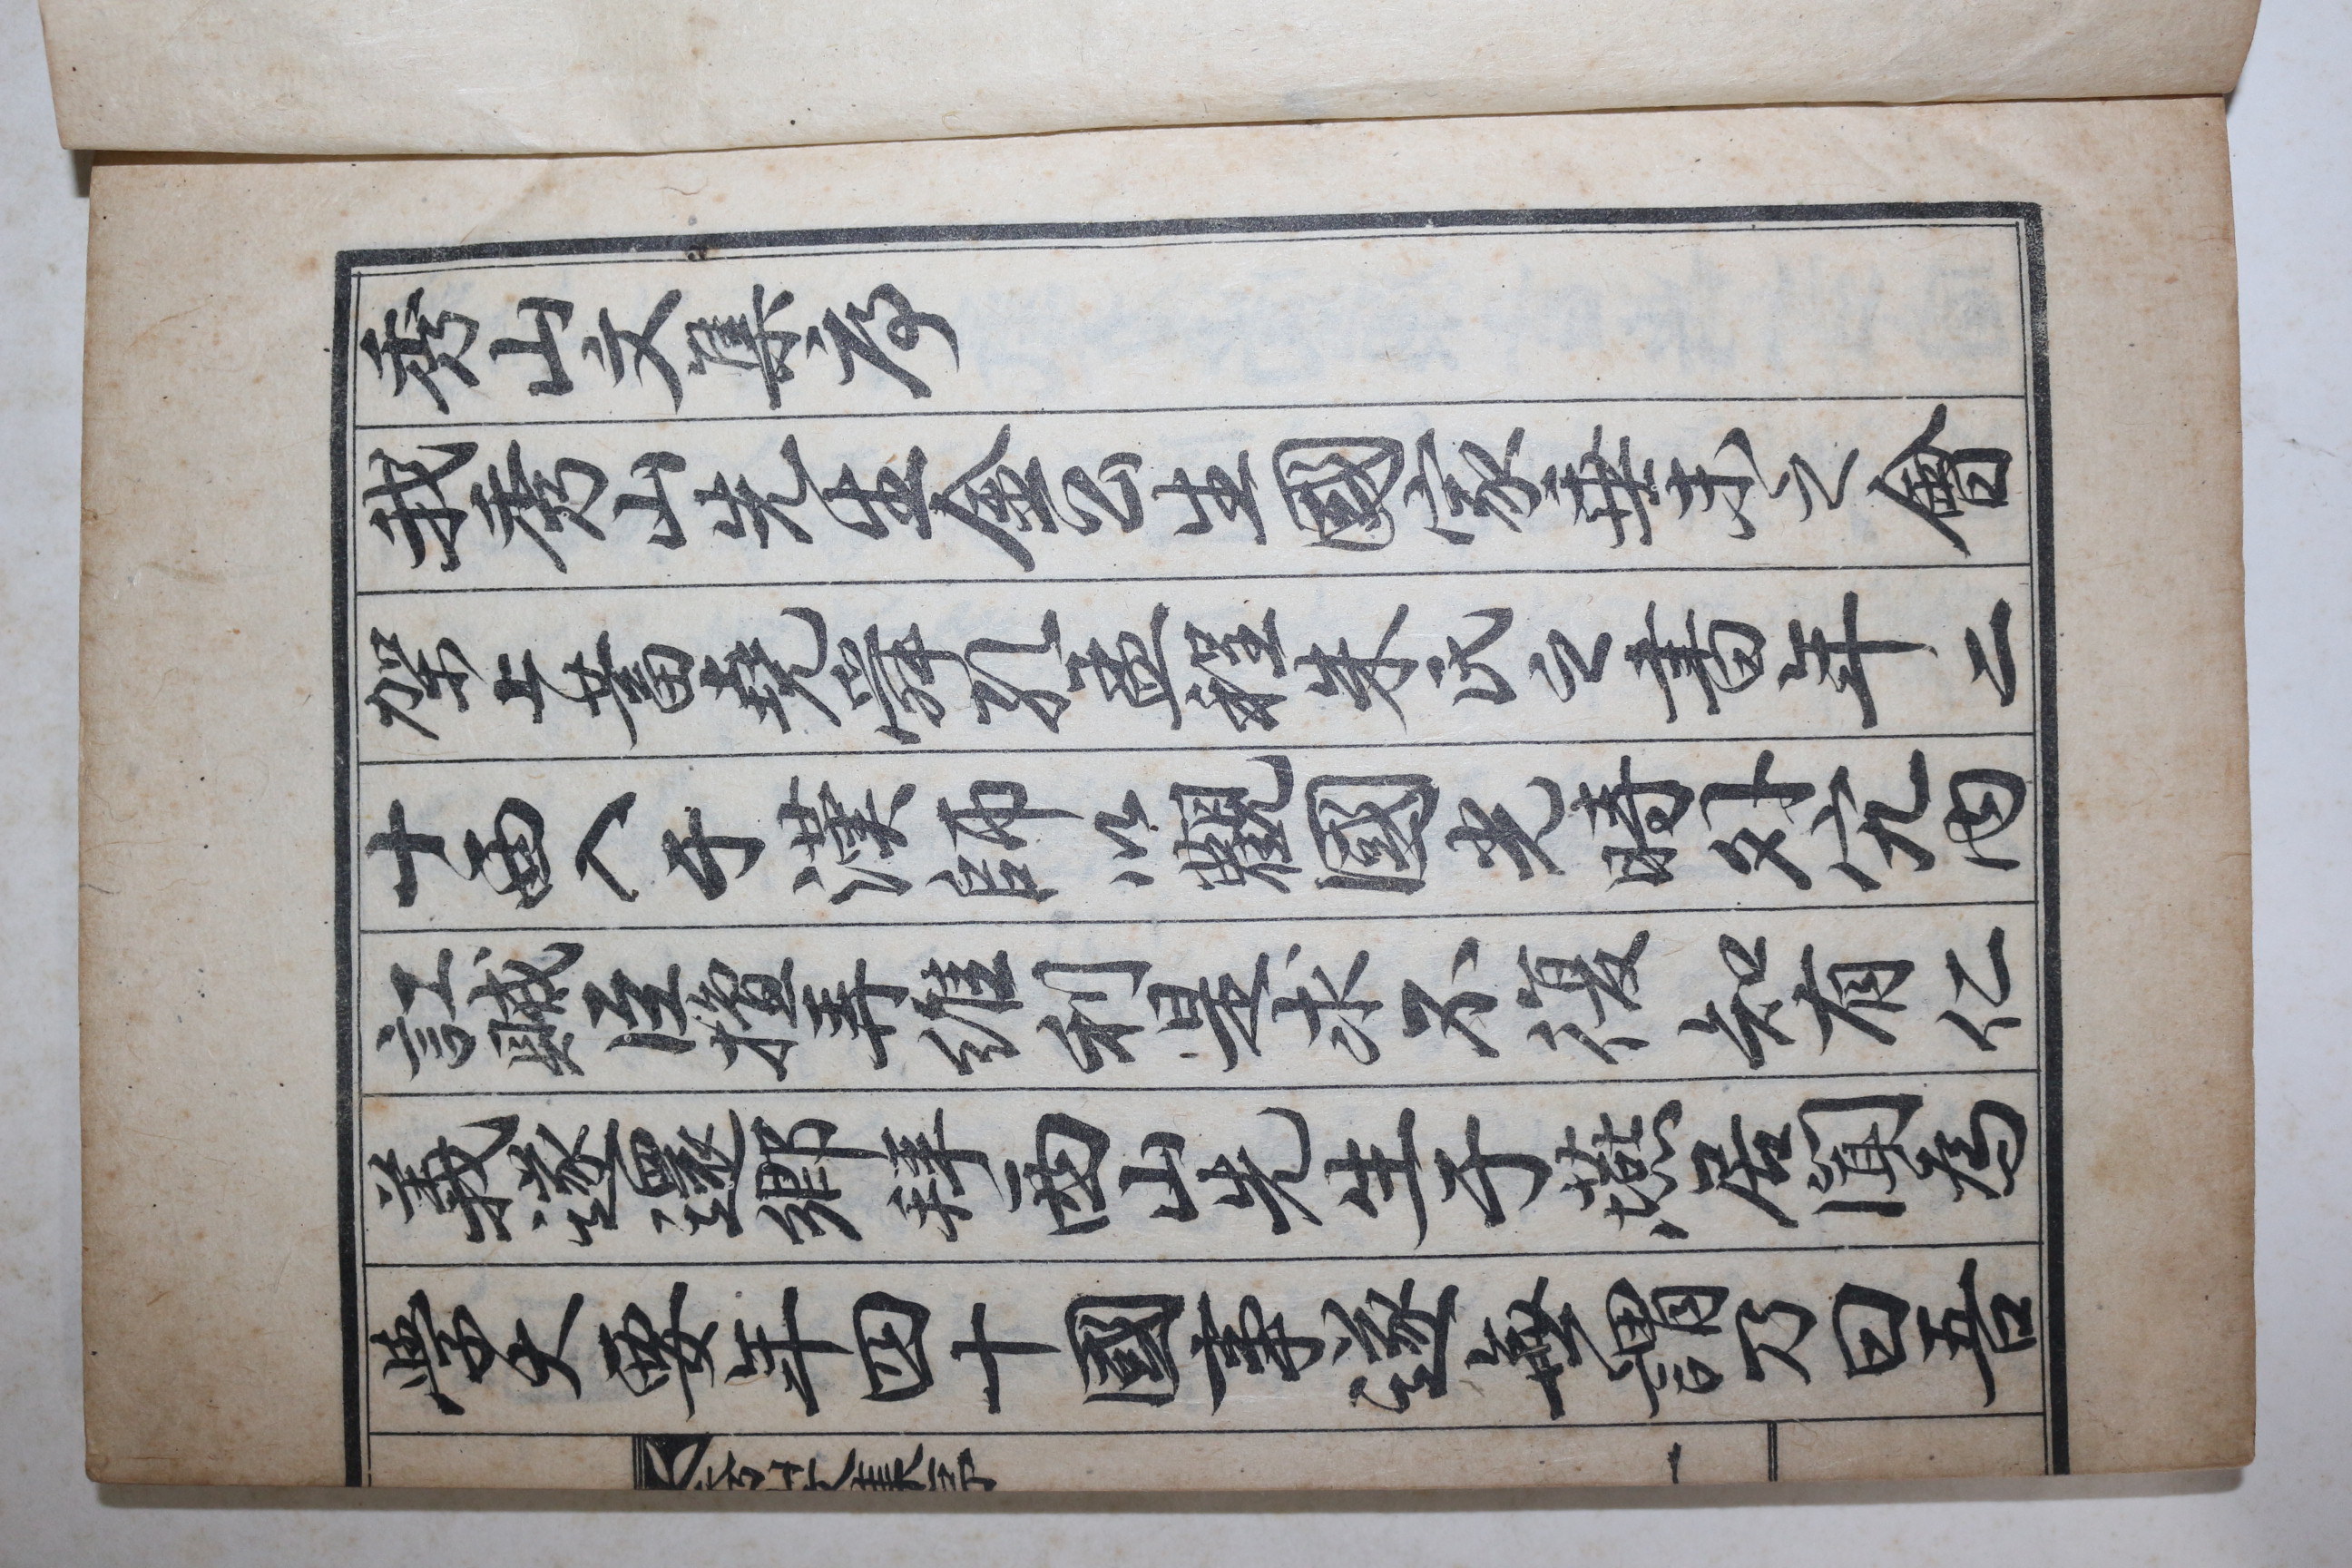 秀山文集序
我秀山先生金公生國家垂末之會
架上蓄堯舜孔孟程朱氏之書年二
十西入于漢師以觀國光時外宄內
訌賊臣擅弄維利是求不復知有仁
義遂還鄉拜西山先生于燕居聞爲
學大要年四十國事遂無謂乃曰吾